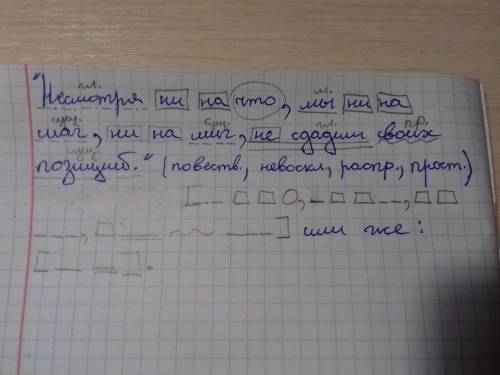 гл.
"Несмотря ни на что, мы ни на
сущ. сущ. гл. пр.
шаг, ни на миг, не сдадим своих
сущ.
позиций." (повеств., невоскл., распр., прост.)
или же: